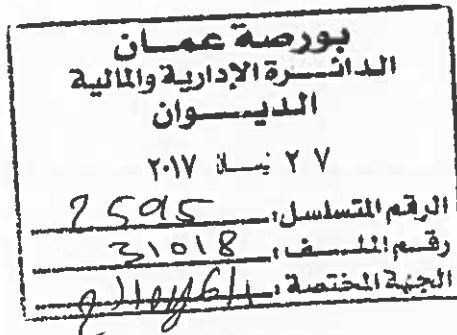 بورصة عمان
الدائرة الإدارية والمالية
الديوان
٢٧ نيسان ٢٠١٧
الرقم المتسلسل: 2595
رقم الملف: 31018
الجهة المختصة: